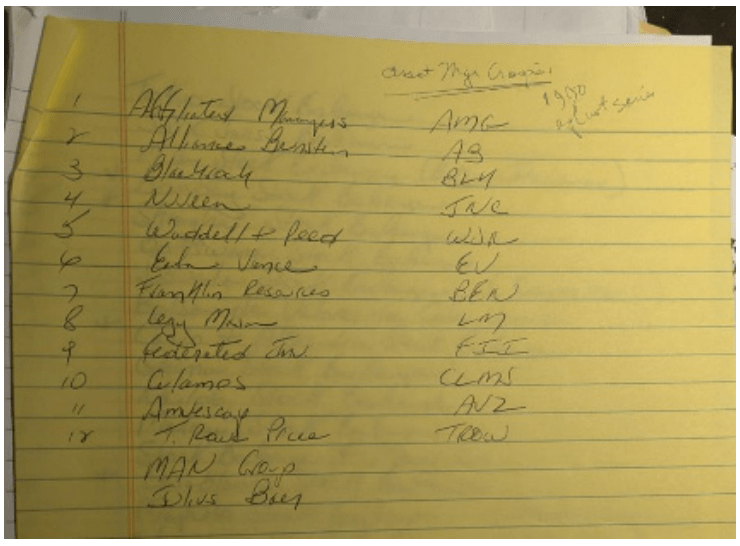 Asset Mgr Crospies
1990
against series
1 Affiliated Managers AMG
2 Alliance Bernstein AB
3 Blackrock BLK
4 Nuveen JNC
5 Waddell + Reed WDR
6 Eaton Vance EV
7 Franklin Resources BEN
8 Legg Mason LM
9 Federated Inv. FII
10 Calamos CLMS
11 Amvescap AVZ
12 T. Rowe Price TROW
MAN Group
Julius Baer